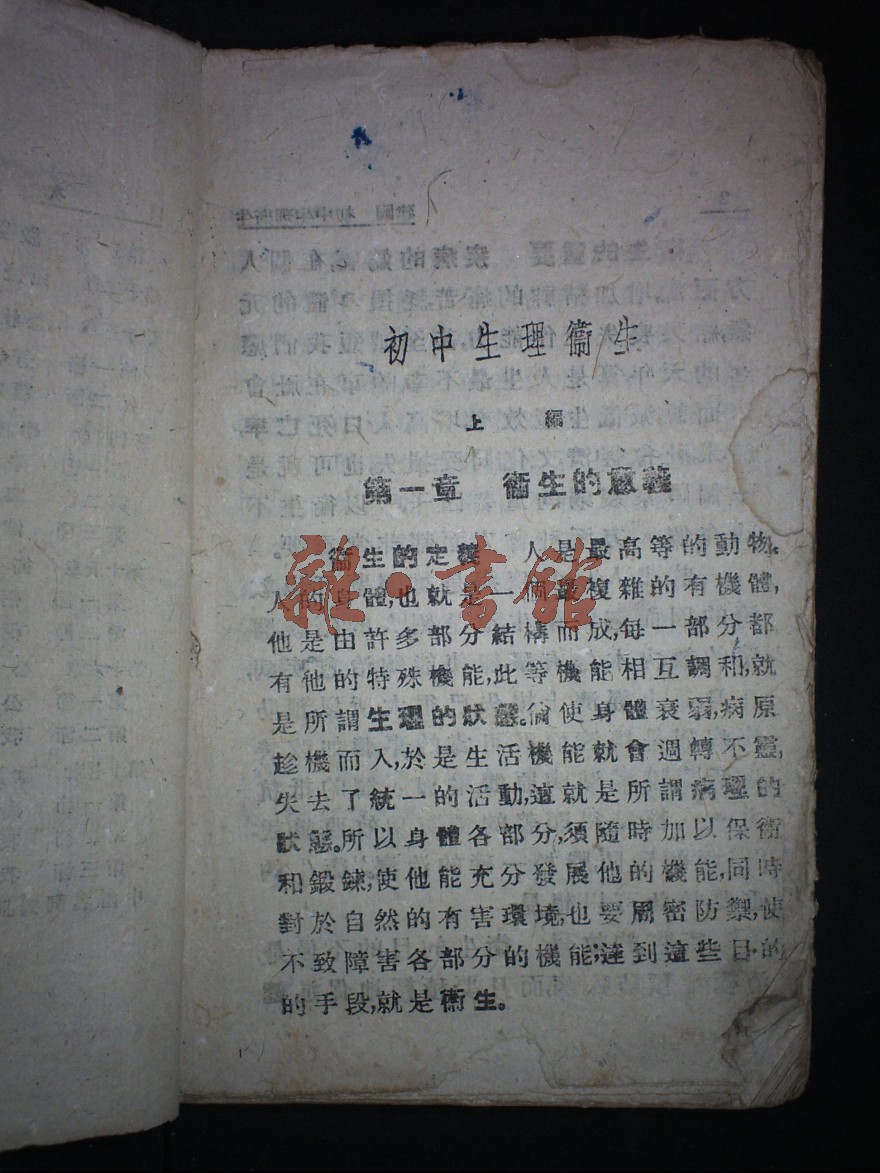 初中生理衞生
上編
第一章 衞生的意義
衞生的定義 人是最高等的動物。
人的身體,也就是一個最複雜的有機體,
他是由許多部分結構而成,每一部分都
有他的特殊機能,此等機能相互調和,就
是所謂生理的狀態。倘使身體衰弱,病原
趁機而入,於是生活機能就會週轉不靈,
失去了統一的活動,這就是所謂病理的
狀態。所以身體各部分,須隨時加以保衞
和鍛鍊,使他能充分發展他的機能,同時
對於自然的有害環境,也要周密防禦,使
不致障害各部分的機能;達到這些目的
的手段,就是衞生。
雜·書館